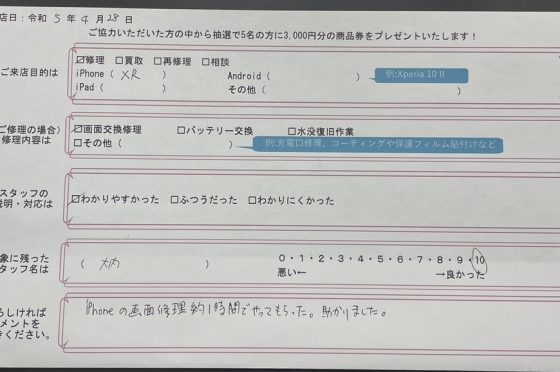 店日：令和 5 年 4 月 28 日
ご協力いただいた方の中から抽選で5名の方に3,000円分の商品券をプレゼントいたします！
ご来店目的は
☑修理 □買取 □再修理 □相談
iPhone（ XR ） Android（ ） 例:Xperia 10 II
iPad（ ） その他（ ）
ご修理の場合）
修理内容は
☑画面交換修理 □バッテリー交換 □水没復旧作業
□その他（ ） 例:充電口修理、コーティングや保護フィルム貼付けなど
スタッフの
説明・対応は
☑わかりやすかった □ふつうだった □わかりにくかった
象に残った
タッフ名は
（ 大内 ）
0・1・2・3・4・5・6・7・8・9・10
悪い← →良かった
ろしければ
メントを
きください。
iPhoneの画面修理約1時間でやってもらった。助かりました。